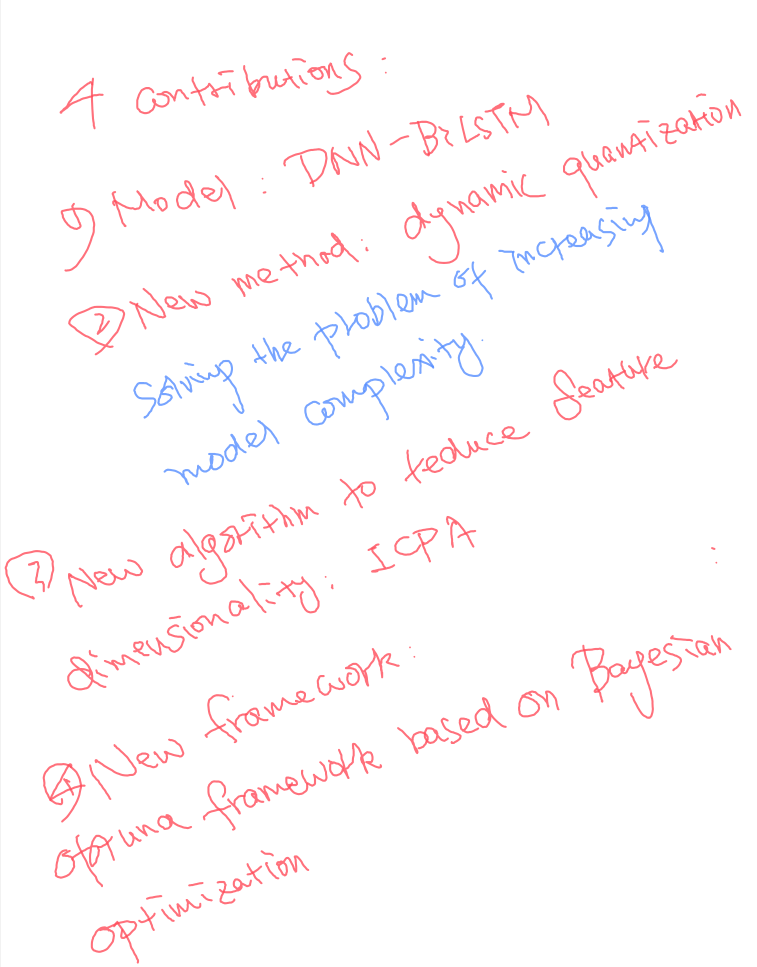 4 contributions:
1) Model: DNN-BiLSTM
② New method: dynamic quantization
Solving the problem of increasing
model complexity.
③ New algorithm to reduce feature
dimensionality: ICPA
④ New framework:
optuna framework based on Bayesian
optimization